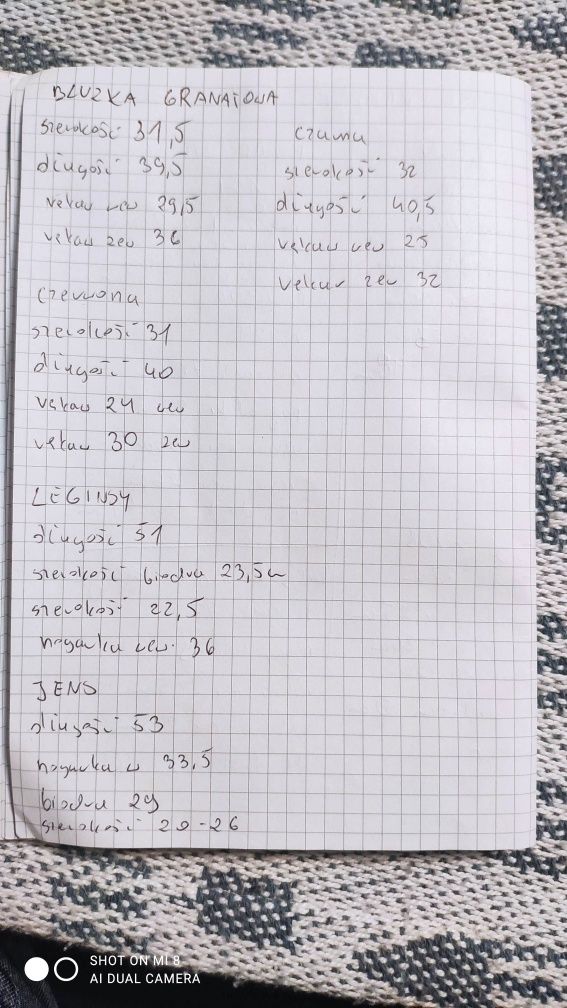 BLUZKA GRANATOWA
szerokość 31,5
długość 39,5
rękaw wew 29,5
rękaw zew 36
czarna
szerokość 32
długość 40,5
rękaw wew 25
rękaw zew 32
czerwona
szerokość 31
długość 40
rękaw 24 wew
rękaw 30 zew
LEGINSY
długość 51
szerokość biodra 23,5
szerokość 22,5
nogawka wew. 36
JENS
długość 53
nogawka w 33,5
biodra 29
szerokość 20-26
SHOT ON MI 8
AI DUAL CAMERA